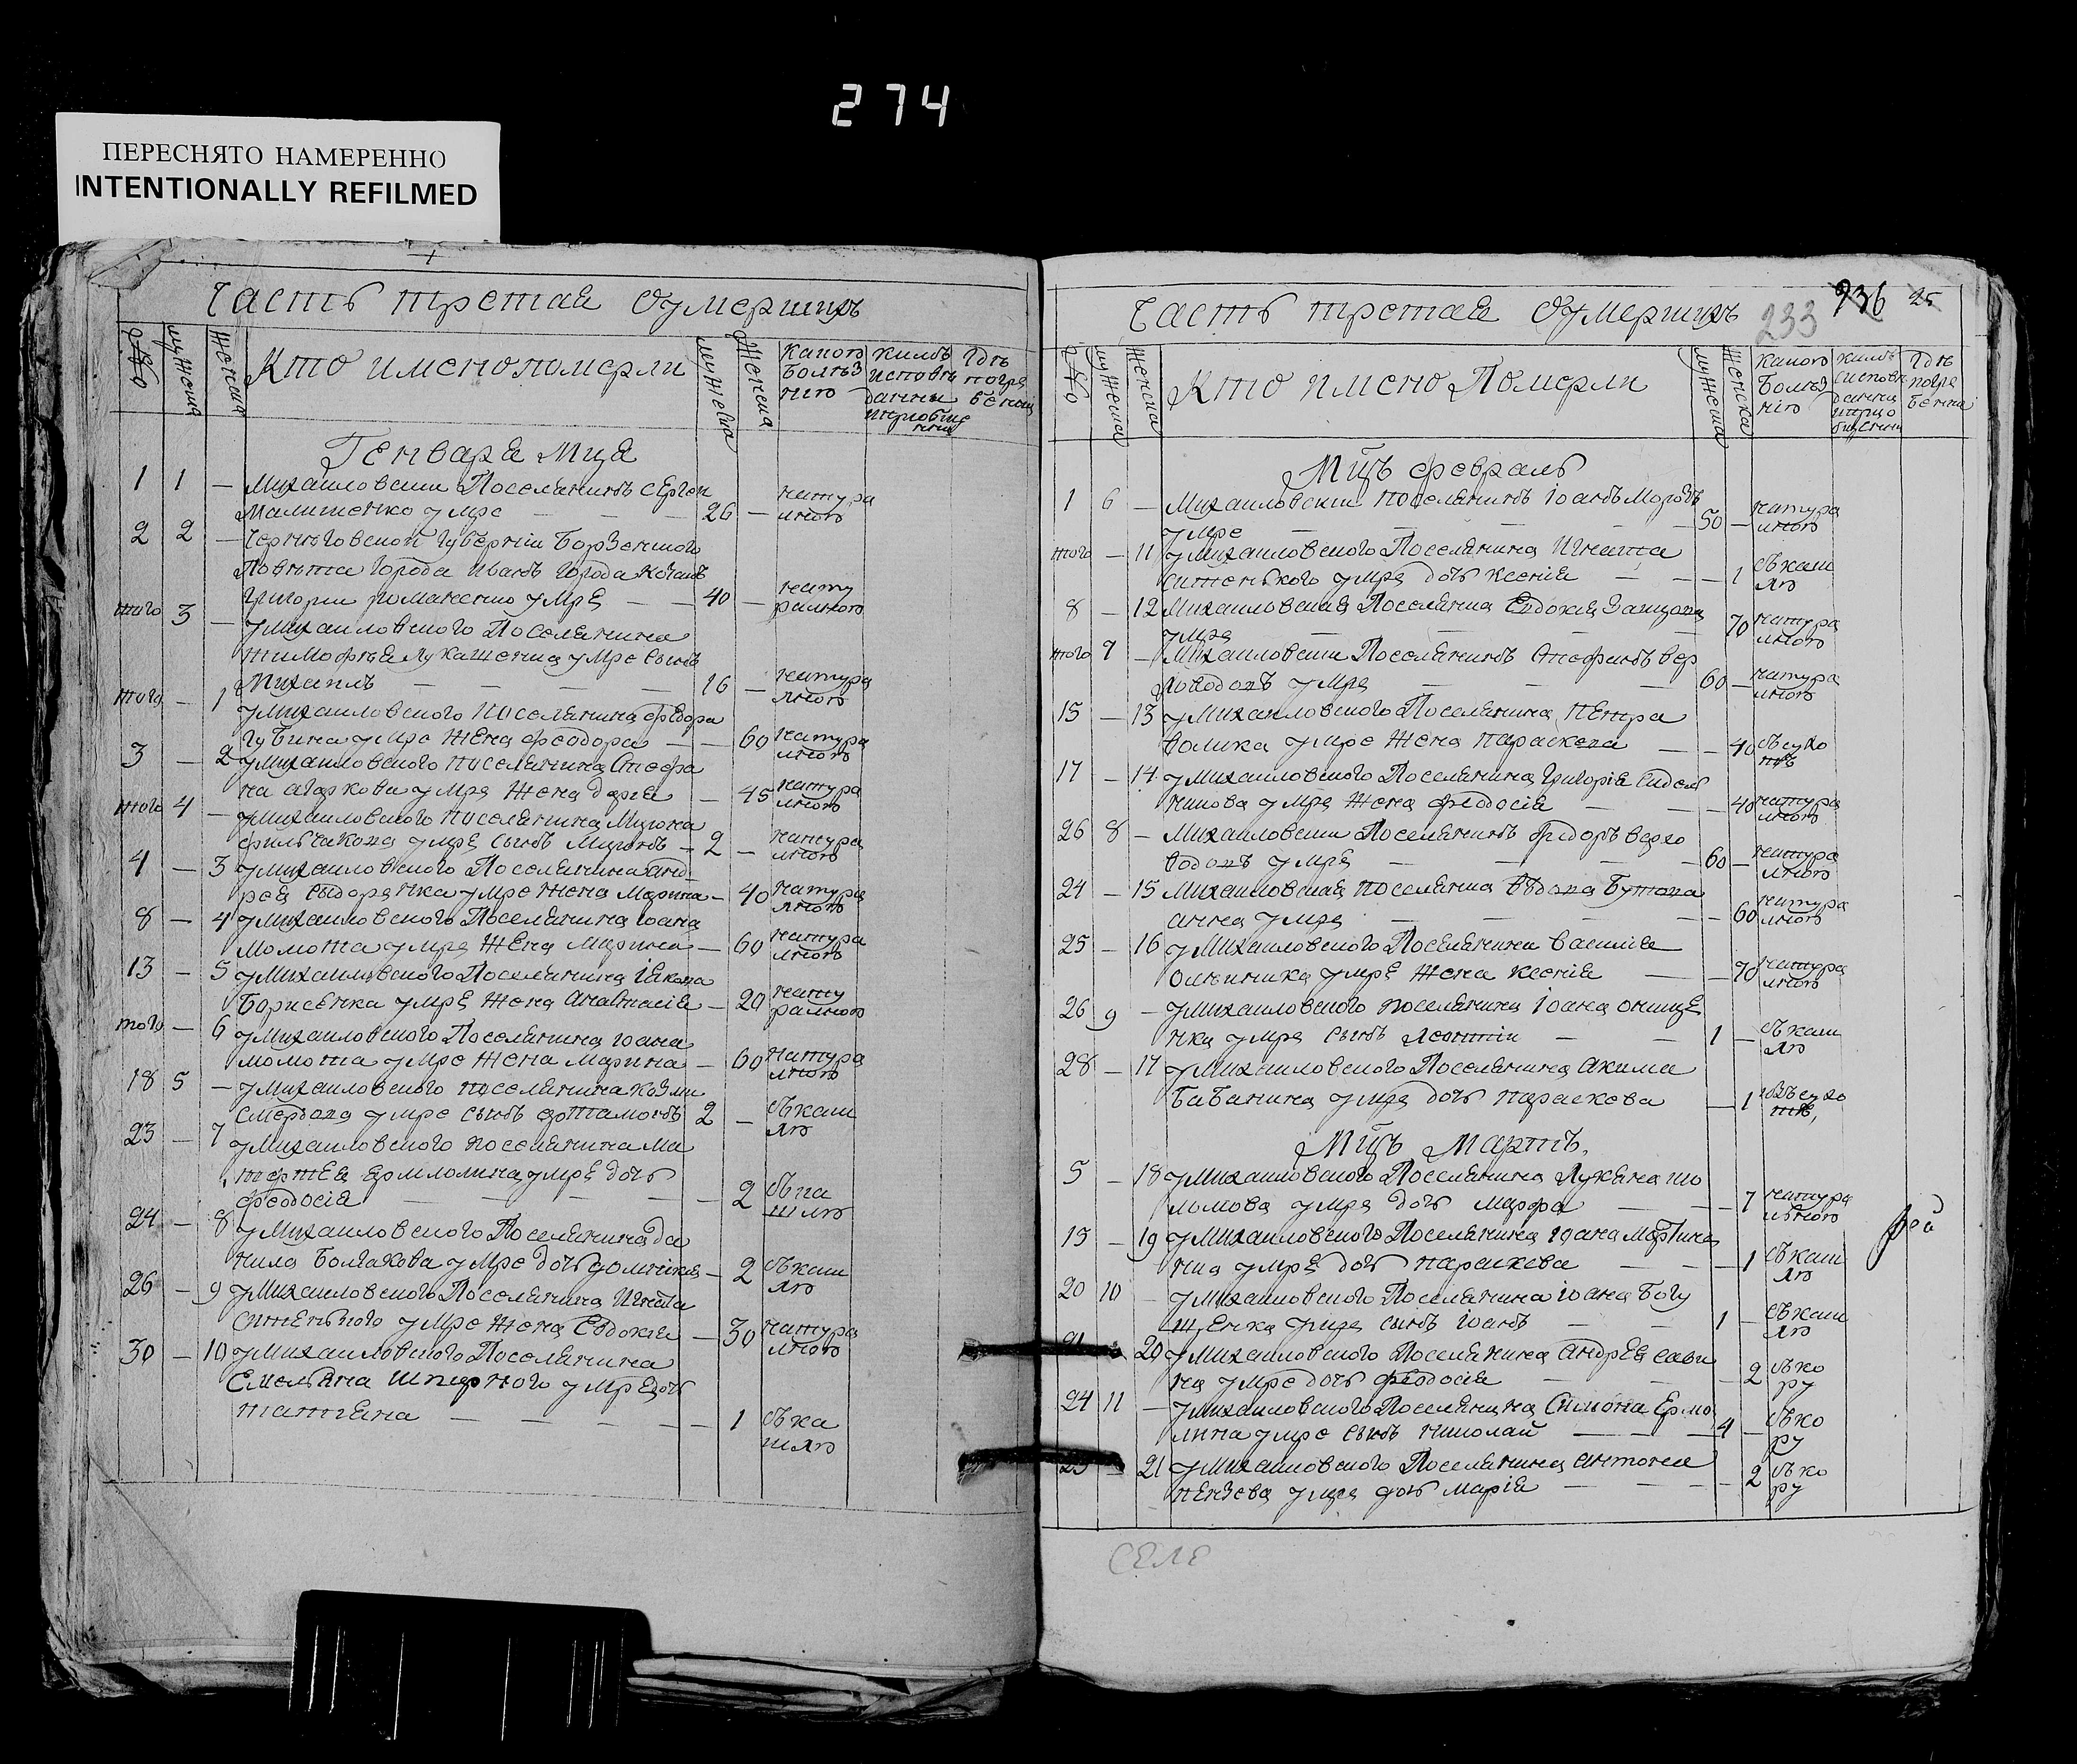 274
ПЕРЕСНЯТО НАМЕРЕННО
INTENTIONALLY REFILMED
Часть третая Оумершихъ
мужеска
женска
Кто имено померли
мужеска
женска
Какою
болѣз
нію
кимъ
исповѣ
данны
где
погре
бенны
Генваря Мця
1 1 — Михаиловскии Поселянинъ Сергеи
Малишенко умре — — 26 — натура
лною
2 2 — Черниговской губернии Борзенского
Повѣта города
Григории Романенко умре — — 40 — нату
ралною
того 3 — у Михаиловского Поселянина
тимофѣя Лукашенка умре сынъ
Михаилъ — — — — 16 — натура
лною
того — 1 у Михаиловского Поселянина федора
губина умре жена феодора — — 60 натура
лною
3 — 2 у Михаиловского поселянина Стефа
на агаркова умре жена дария — 45 натура
лною
того 4 — у Михаиловского поселянина Мирона
филчакова умре сынъ Миронъ — 2 — натура
лною
4 — 3 у Михаиловского Поселянина анд
рея Сыдоренка умре жена Марина — 40 натура
лною
8 — 4 у Михаиловского Поселянина иоана
Момота умре жена Марина — 60 натура
лною
13 — 5 у Михаиловского Поселянина Іакова
Борисенка умре жена Анастасія — 20 нату
ралною
того — 6 у Михаиловского Поселянина иоана
момота умре жена марина — 60 натура
лною
18 5 — у Михаиловского поселянина Козми
умре сынъ артамонъ 2 — Ѿкаш
лю
23 — 7 у Михаиловского поселянина Ма
тфея ермолина умре дочь
феодосія — — — — — 2 Ѿка
шлю
24 — 8 у Михаиловского Поселянина да
нила Болчакова умре дочь домникия — 2 Ѿкаш
лю
26 — 9 у Михаиловского Поселянина Игната
ситенкого умре жена Евдокия — 30 натура
лною
30 — 10 у Михаиловского Поселянина
Емельяна умре дочь
татияна — — — — — 1 Ѿка
шлю
Часть третая Оумершихъ 233 236 25
мужеска
женска
Кто имено Померли
мужеска
женска
Какою
болѣз
нію
кимъ
исповѣ
данны
где
погре
бенны
Мцъ февраль
1 6 — Михаиловскии поселянинъ Іоанъ Морозъ
умре — — — — — 50 — натура
лною
того — 11 у Михаиловского Поселянина Игната
ситенького умре дочь ксения — — — 1 Ѿкаш
лю
8 — 12 Михаиловская Поселянка Евдокия
умре — — — — 70 натура
лною
того 7 — Михаиловскии Поселянинъ Стефанъ вер
ховодовъ умре — — — 60 — натура
лною
15 — 13 у Михаиловского Поселянина Петра
волика умре жена параскева — — 40 Ѿсухо
тѣ
17 — 14 у Михаиловского Поселянина Григорія
умре жена феодосія — — — 40 натура
лною
26 8 — Михаиловскии Поселянинъ федоръ верхо
водовъ умре — — — — 60 — натура
лною
24 — 15 Михаиловская поселянка вдова Бутова
анна умре — — — — — 60 натура
лною
25 — 16 у Михаиловского Поселянина василия
олѣиника умре жена ксения — — 70 натура
лною
26 9 — у Михаиловского поселянина Іоана онище
нка умре сынъ леонтии — — 1 — Ѿкаш
лю
28 — 17 у Михаиловского Поселянина акима
Бабанина умре дочь параскева — 1 Ѿсухо
тѣ
Мцъ Мартъ
5 — 18 у Михаиловского Поселянина Лукяна шо
ломова умре дочь марфа — — — 7 натура
лною
15 — 19 у Михаиловского Поселянина Іоана
умре дочь параскева — — — 1 Ѿкаш
лю
20 10 — у Михаиловского Поселянина Іоана Богу
щенка умре сынъ Іоанъ — — 1 — Ѿкаш
лю
21 — 20 у Михаиловского Поселянина Андрея сави
на умре дочь феодосія — — — 2 Ѿко
ру
24 11 — у Михаиловского Поселянина Симона Ермо
лина умре сынъ николай — — — 4 — Ѿко
ру
25 — 21 у Михаиловского Поселянина антона
пензева умре дочь марія — — — — 2 Ѿко
ру
СЕЛЕ